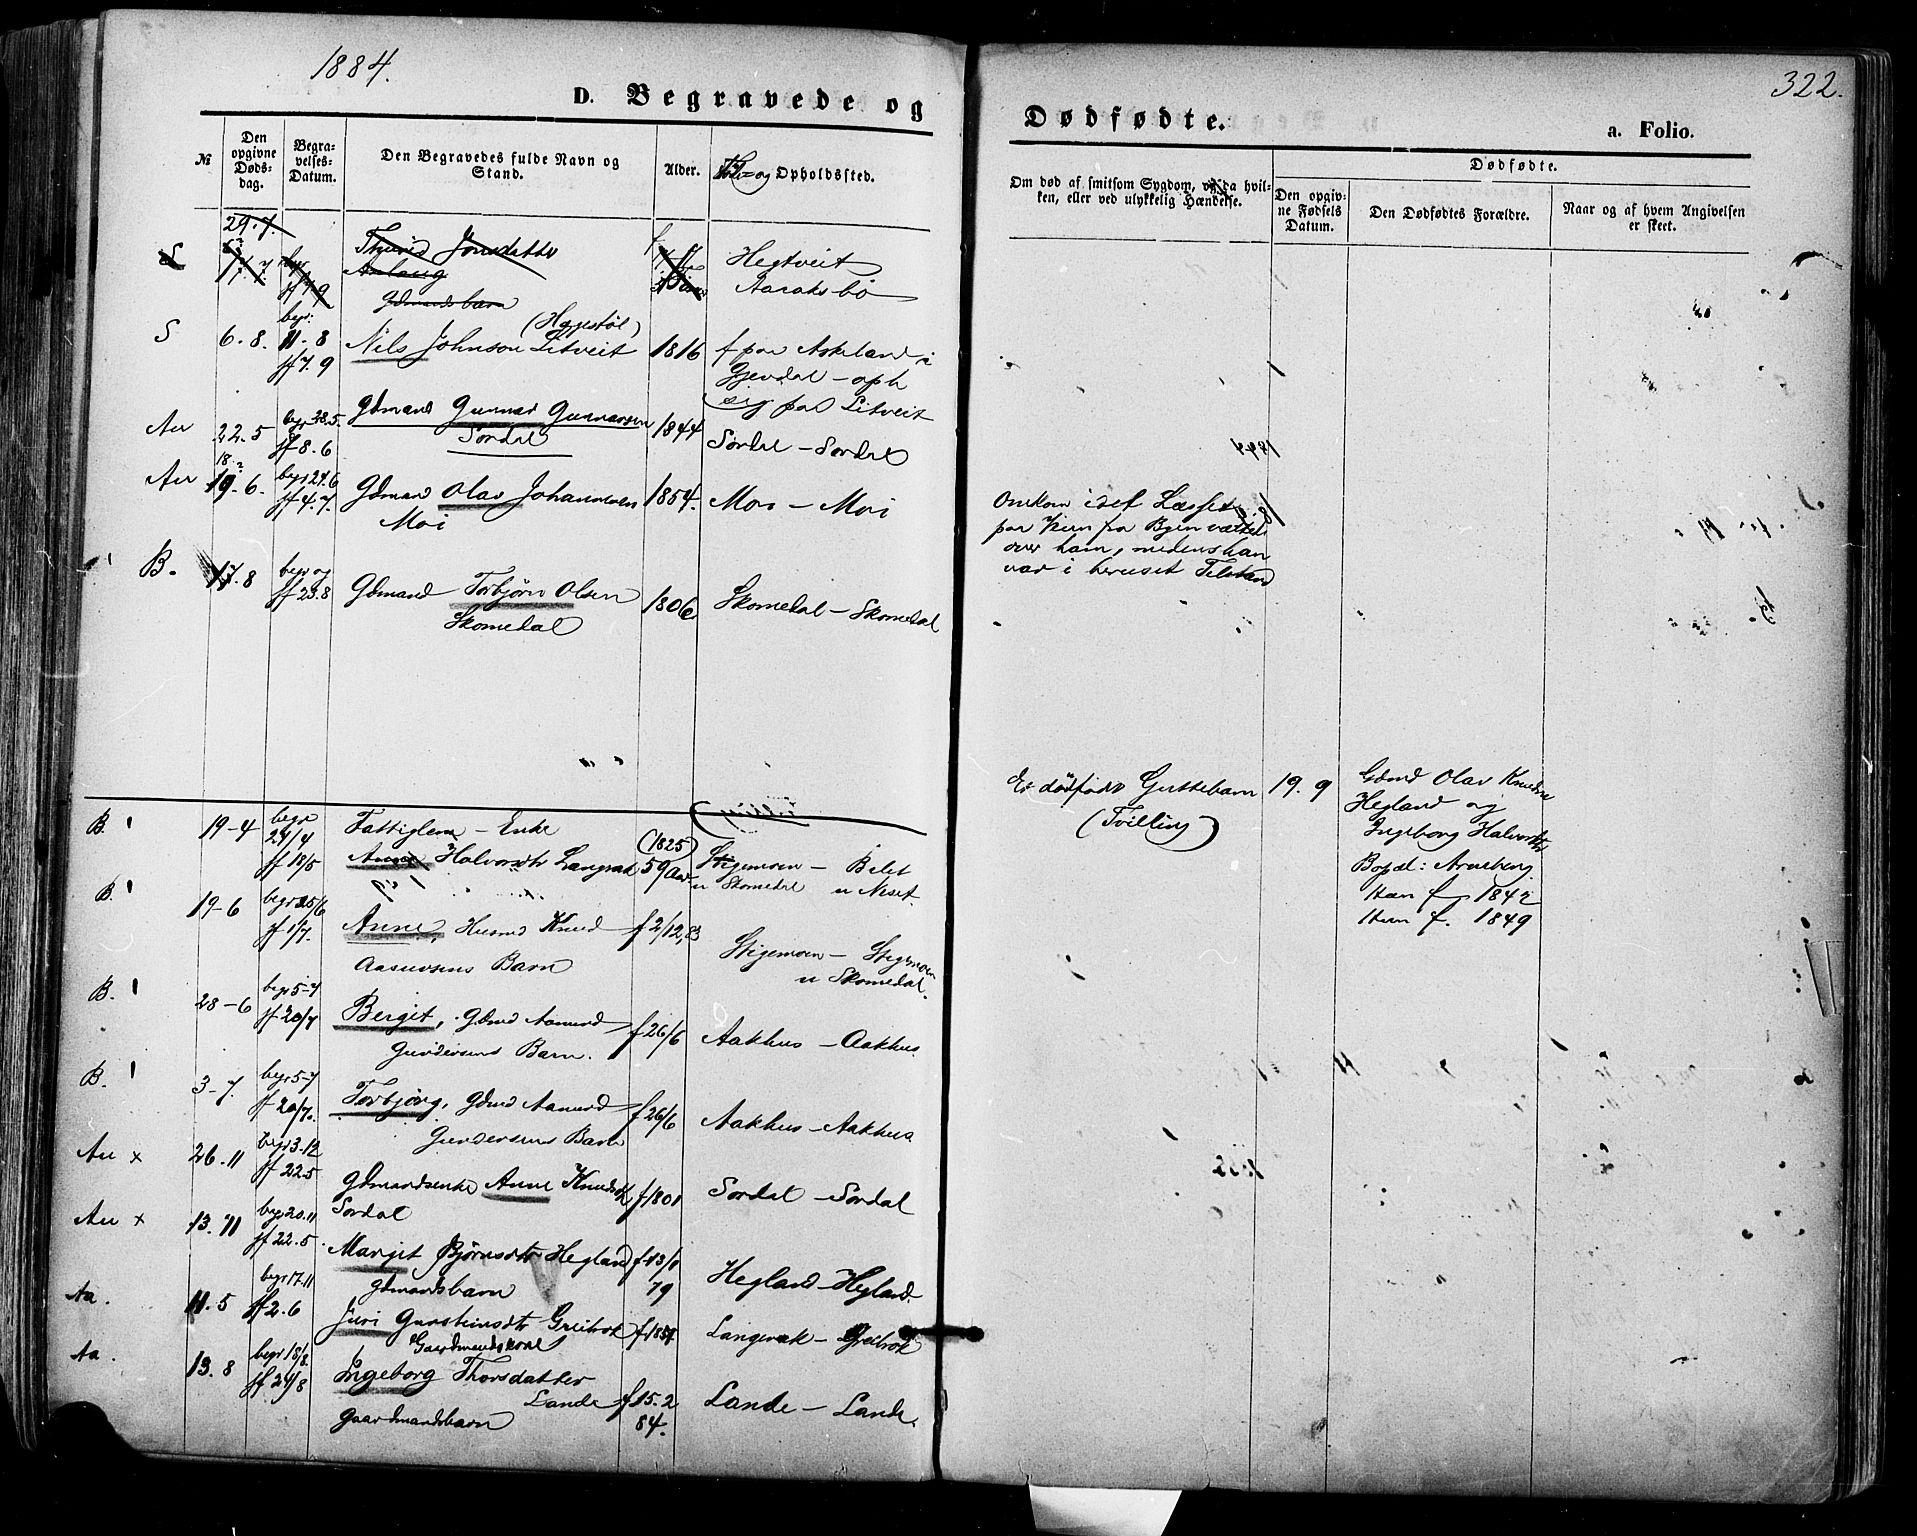 1884.
322.
D. Begravede og
Dødfødte.
a. Folio.
№
Den opgivne Dødsdag.
Begravelses-Datum.
Den Begravedes fulde Navn og Stand.
Alder.
Føde- og Opholdssted.
Om død af smitsom Sygdom, og da hvilken, eller ved ulykkelig Hændelse.
Dødfødte.
Den opgivne Fødsels Datum.
Den Dødfødtes Forældre.
Naar og af hvem Angivelsen er skeet.
29.7.
S 17/7 begr ff 7/9 Jonsdatter Hegtveit
Aslaug Aaraksbø
Gdmandsbarn
begr: (Heggestøl)
S 6.8. 11.8 Nils Johnson Litveit 1816 f paa Askeland i
ff 7.9 Gjevdal - oph
sig paa Litveit
Au 22.5 begr 28.5. Gdmand Gunnar Gunnarsen 1844 Sordal - Sordal
ff 8.6 Sordal
18.?
Au 19.6. begr 24.6 Gdmand Olav Johannesen 1854. Moi - Moi
ff 4.7. Moi
Omkom idet Læsset
paa Veien fra Byen væltede
over ham, medens han
var i beruset Tilstand
B. 17.8 begr og Gdmand Torbjørn Olsen 1806 Skomedal - Skomedal
ff 23.8 Skomedal
Et dødfødt Guttebarn 19.9 Gdmd Olav Knudsen
(Tvilling) Hegland og
Ingeborg Halvorsdtr
Bopæl: Arneberg.
Han f. 1842
Hun f. 1849
B. 19-4 begr 24/4 Fattiglem - Enke (1825)
ff 18/5 Halvorsdtr Langerak 59 Aar Stigemoen - Belet
u Skomedal u Neset.
B. 19-6 begr 25/6 Anne, Husmd Knud f 2/12,83 Stigemoen - Stigemoen
ff 1/7. Aasuvsens Barn u Skomedal.
B. 28-6 begr 5-7 Bergit, Gdmd Aanund f 26/6 Aakhus - Aakhus.
ff 20/7 Gundersens Barn.
B. 3-7. begr 5-7 Torbjørg, Gdmd Aanund f 26/6 Aakhus - Aakhus
ff 20/7. Gundersens Barn
Au x 26.11 begr 3.12 Gdmandsenke Anne Knudsdtr f 1801 Sordal - Sordal
ff 22.5 Sordal
Au x 13.11 begr 20.11 Margit Bjørnsdtr Hegland f 13/1 79 Hegland - Hegland.
ff 22.5. Gdmandsbarn
Aa. 11.5 begr 17.11 Juri Gunsteinsdtr Greibrok Langerak - Greibrok
ff 2.6 Gaardmandskone
Aa. 13.8 begr 18/8. Ingeborg Thorsdatter f 15.2 84. Lande - Lande.
ff 24/8 Lande
Gaardmandsbarn